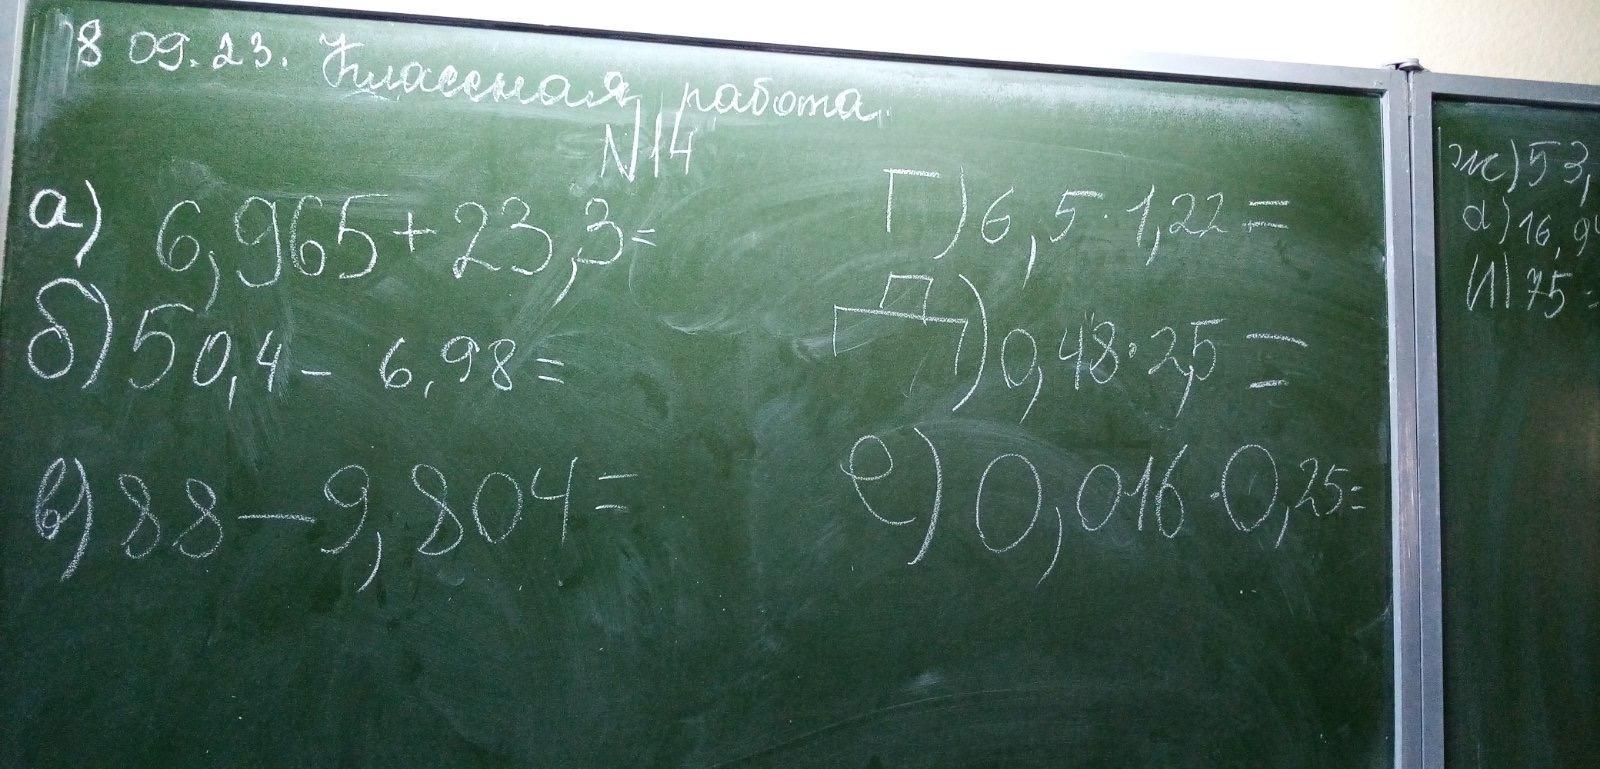 8 09.23. Классная работа
N14
а) 6,965 + 23,3 =
б) 50,4 - 6,98 =
в) 88 - 9,804 =
Г) 6,5 · 1,22 =
Д) 0,48 · 2,5 =
е) 0,016 · 0,25 =
ж) 53,
16,9
75